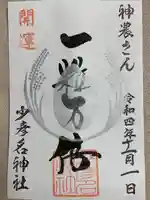 神農さん
令和四年十一月一日
一粒万倍
開運
少彦名神社